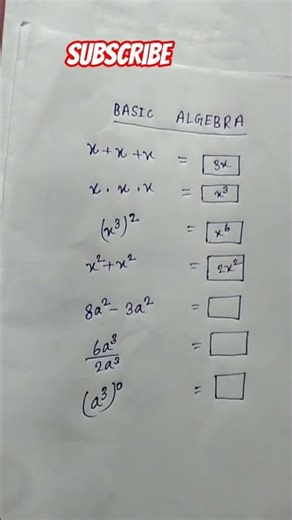 SUBSCRIBE
BASIC ALGEBRA
x + x + x = 3x
x . x . x = x³
(x³)² = x⁶
x² + x² = 2x²
8a² - 3a² =
6a³/2a³ =
(a³)⁰ =